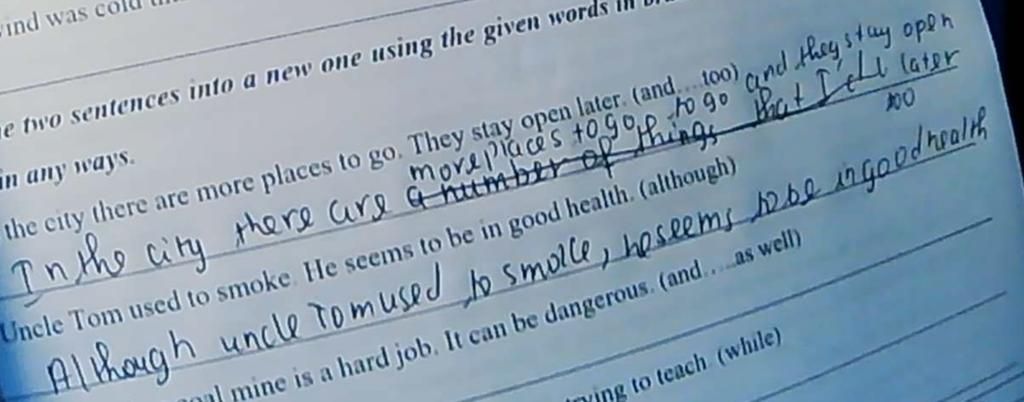 ind was cold
e two sentences into a new one using the given words in
in any ways.
the city there are more places to go. They stay open later. (and....too)
In the city there are a number of things that I'ell later
more places to go to go and they stay open
too
Uncle Tom used to smoke. He seems to be in good health. (although)
Although uncle Tom used to smoke, he seems to be in good health
oal mine is a hard job. It can be dangerous. (and.....as well)
ying to teach (while)